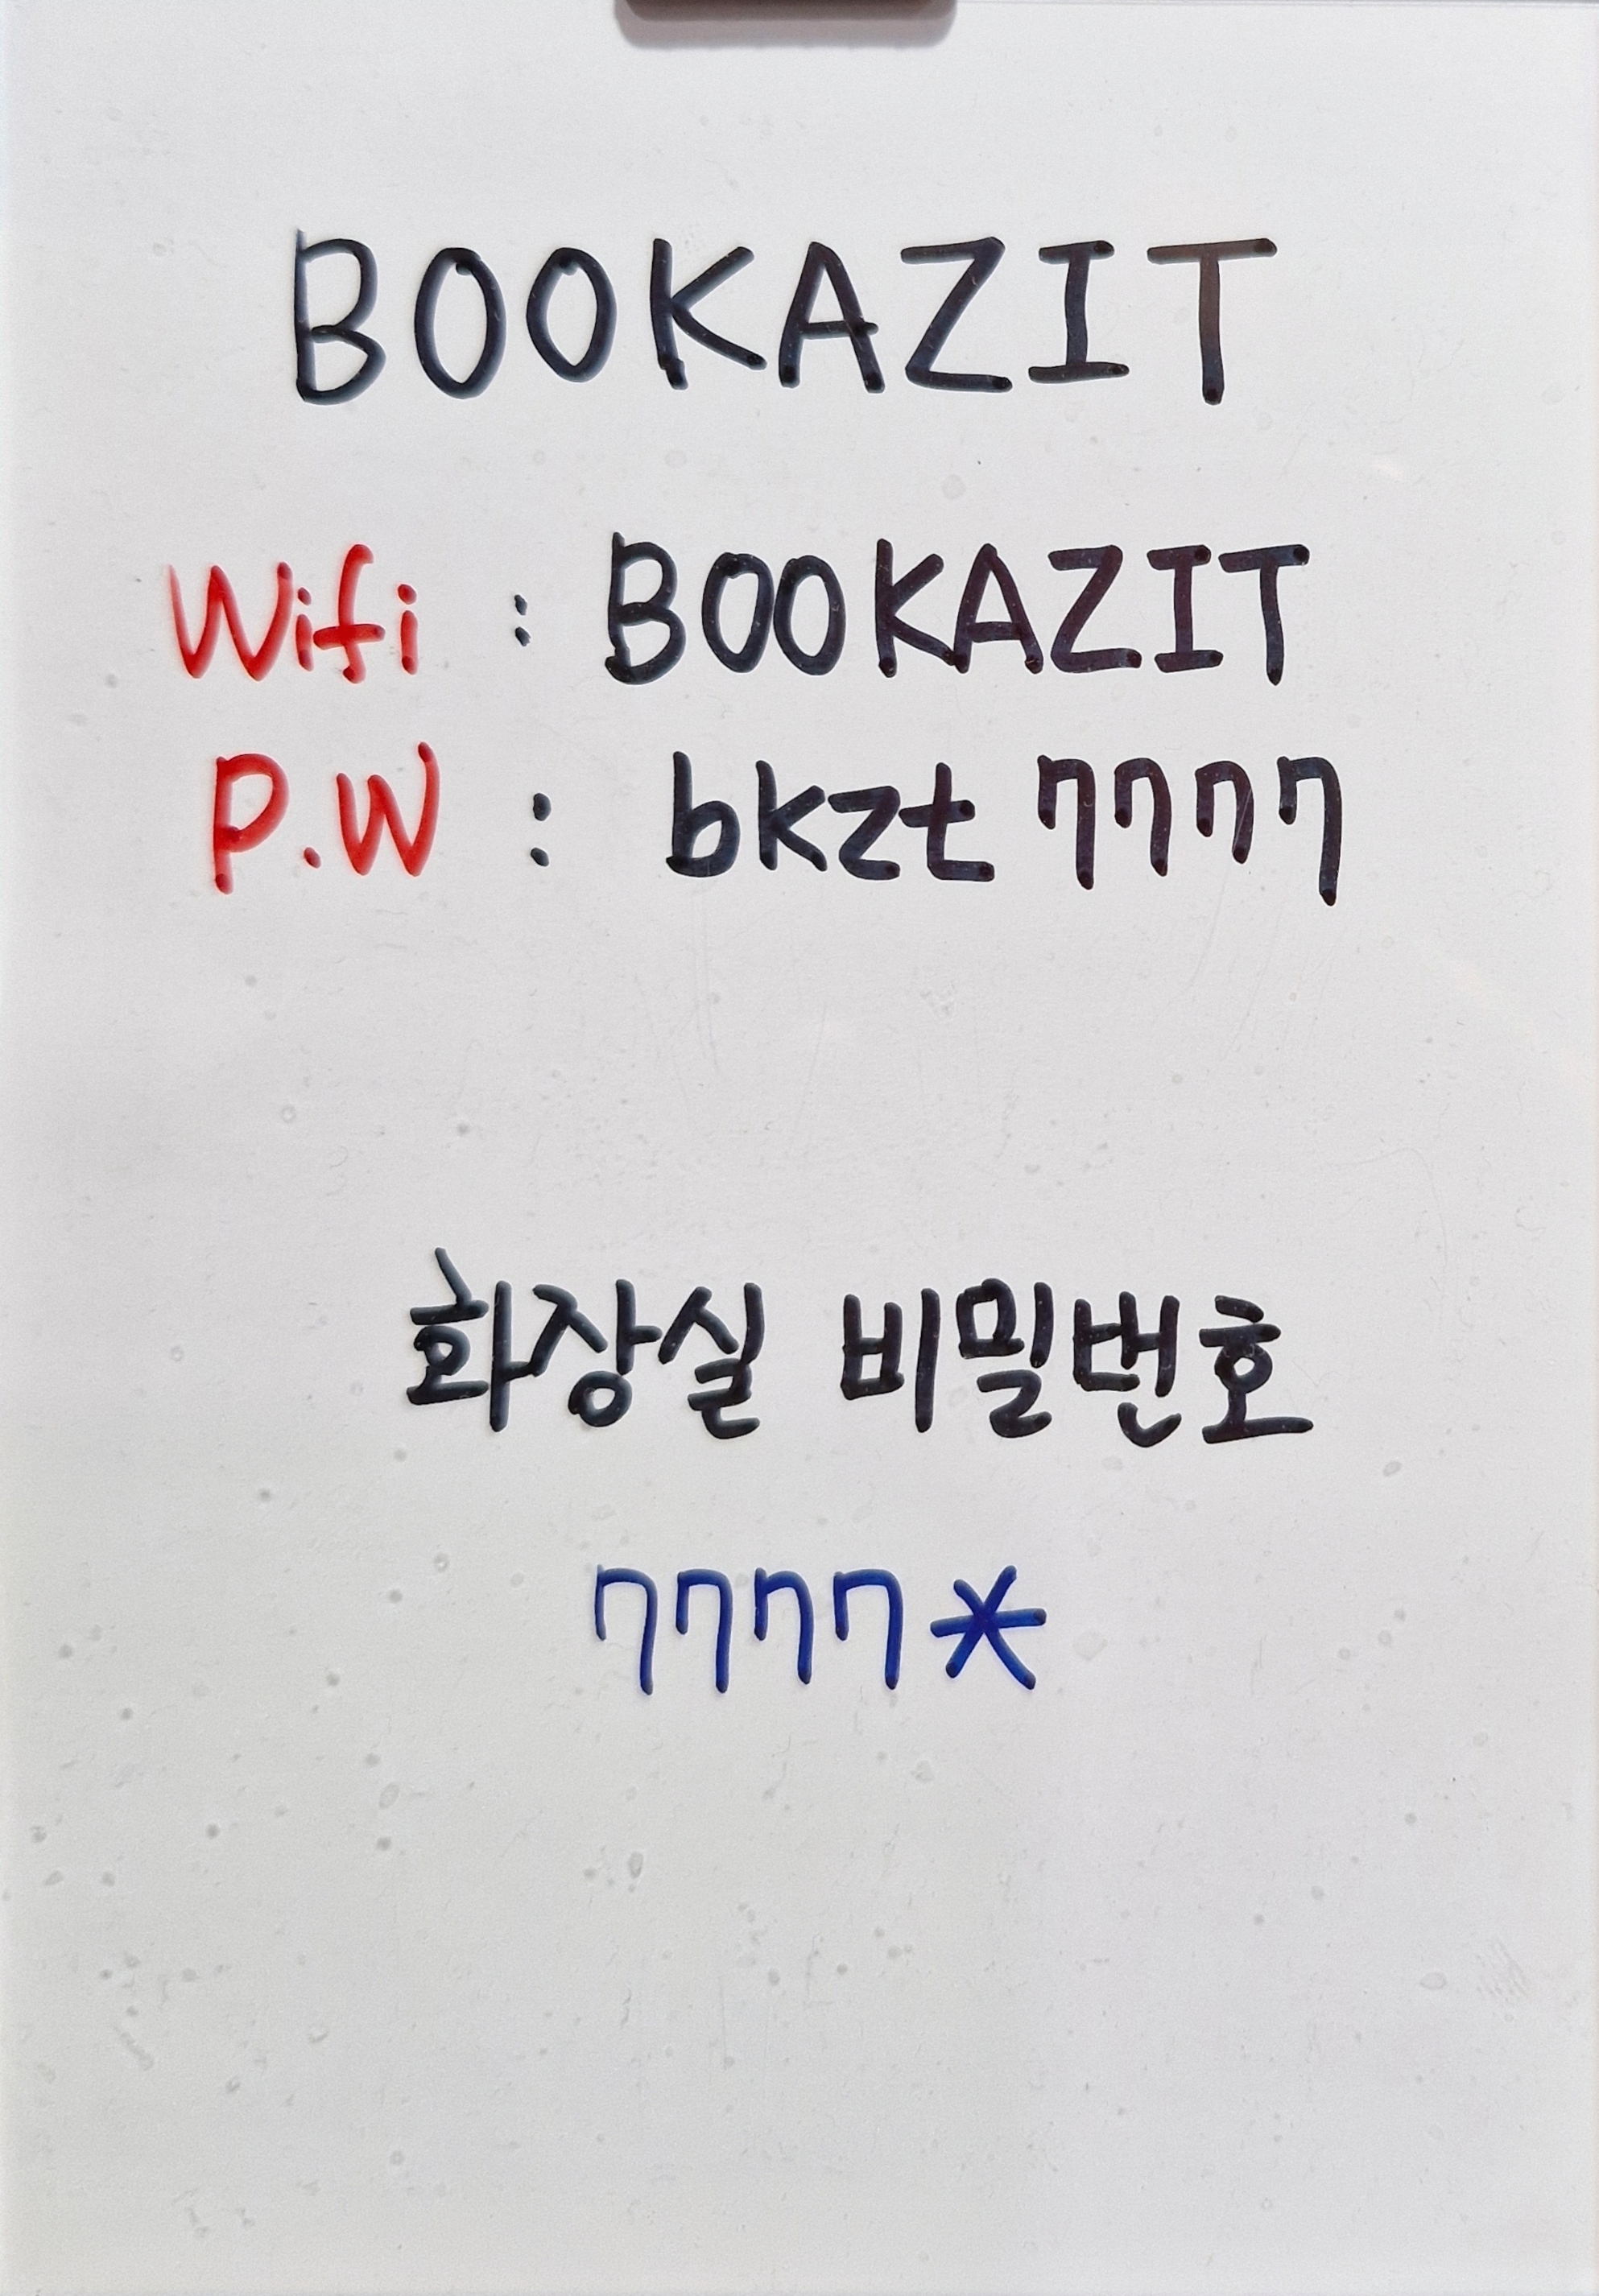 BOOKAZIT
Wifi : BOOKAZIT
P.W : bkzt 7777
화장실 비밀번호
7777*